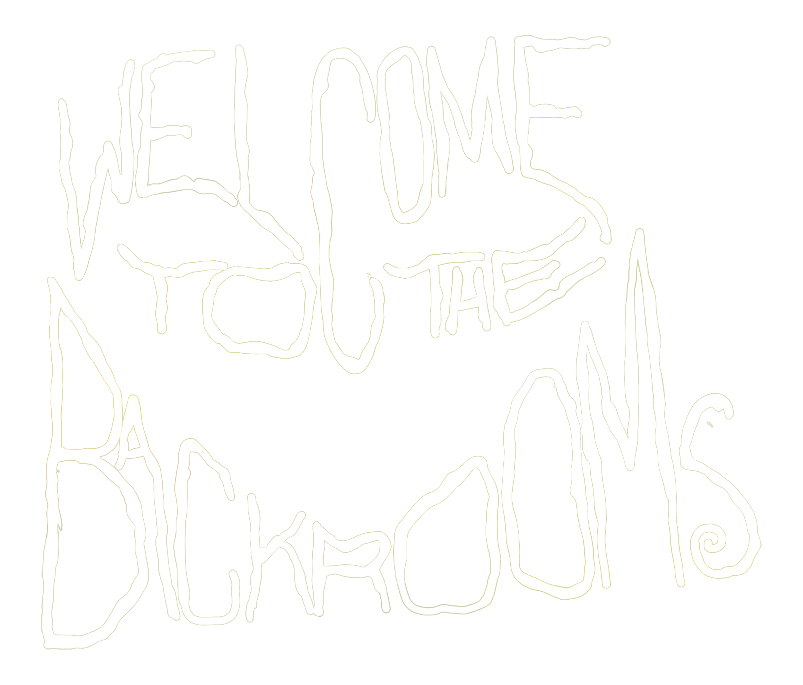 WELCOME
TO THE
BACKROOMS